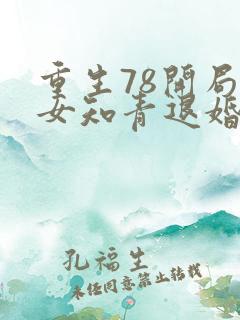 重生78开局
女知青退婚
孔福生
未经同意禁止转载